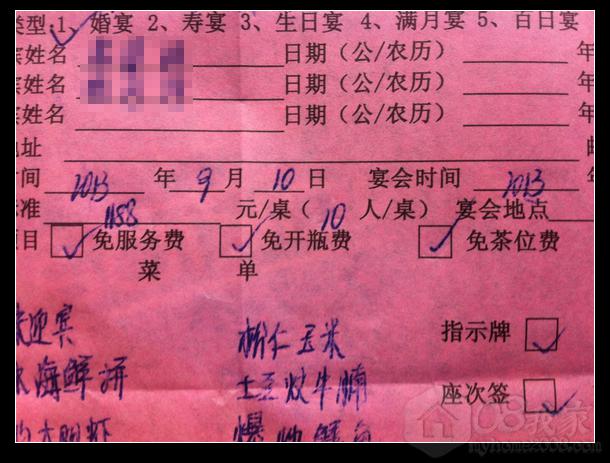 类型:1、婚宴 2、寿宴 3、生日宴 4、满月宴 5、百日宴
宾姓名 日期（公/农历） 年
宾姓名 日期（公/农历） 年
宾姓名 日期（公/农历） 年
地址
时间 2013 年 9 月 10 日 宴会时间 2013 年
标准 1188 元/桌（10 人/桌） 宴会地点
项目 免服务费 免开瓶费 免茶位费
菜 单
迎宾 松仁玉米 指示牌
海鲜拼 土豆炆牛腩 座次签
大明虾 爆
myhome2008.com